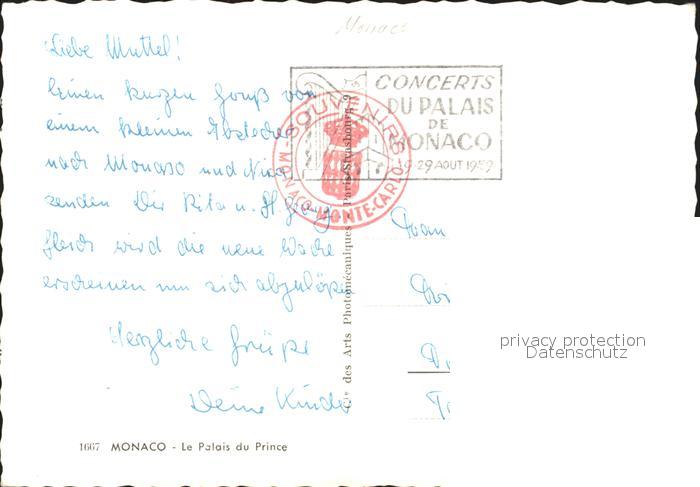 Monaco
Liebe Muttel!
Einen kurzen Gruß von
einem kleinen Abstecher
nach Monaco und Nizza
senden Dir Rita u.
Gleich wird die neue Wache
erscheinen um sich abzulösen
Herzliche Grüße
Deine Kinder
CONCERTS
DU PALAIS
DE
MONACO
9-29 AOUT 1959
SOUVENIRS
MONACO-MONTE-CARLO
Cie des Arts Photomécaniques Paris-Strasbourg 9
privacy protection
Datenschutz
1667 MONACO - Le Palais du Prince